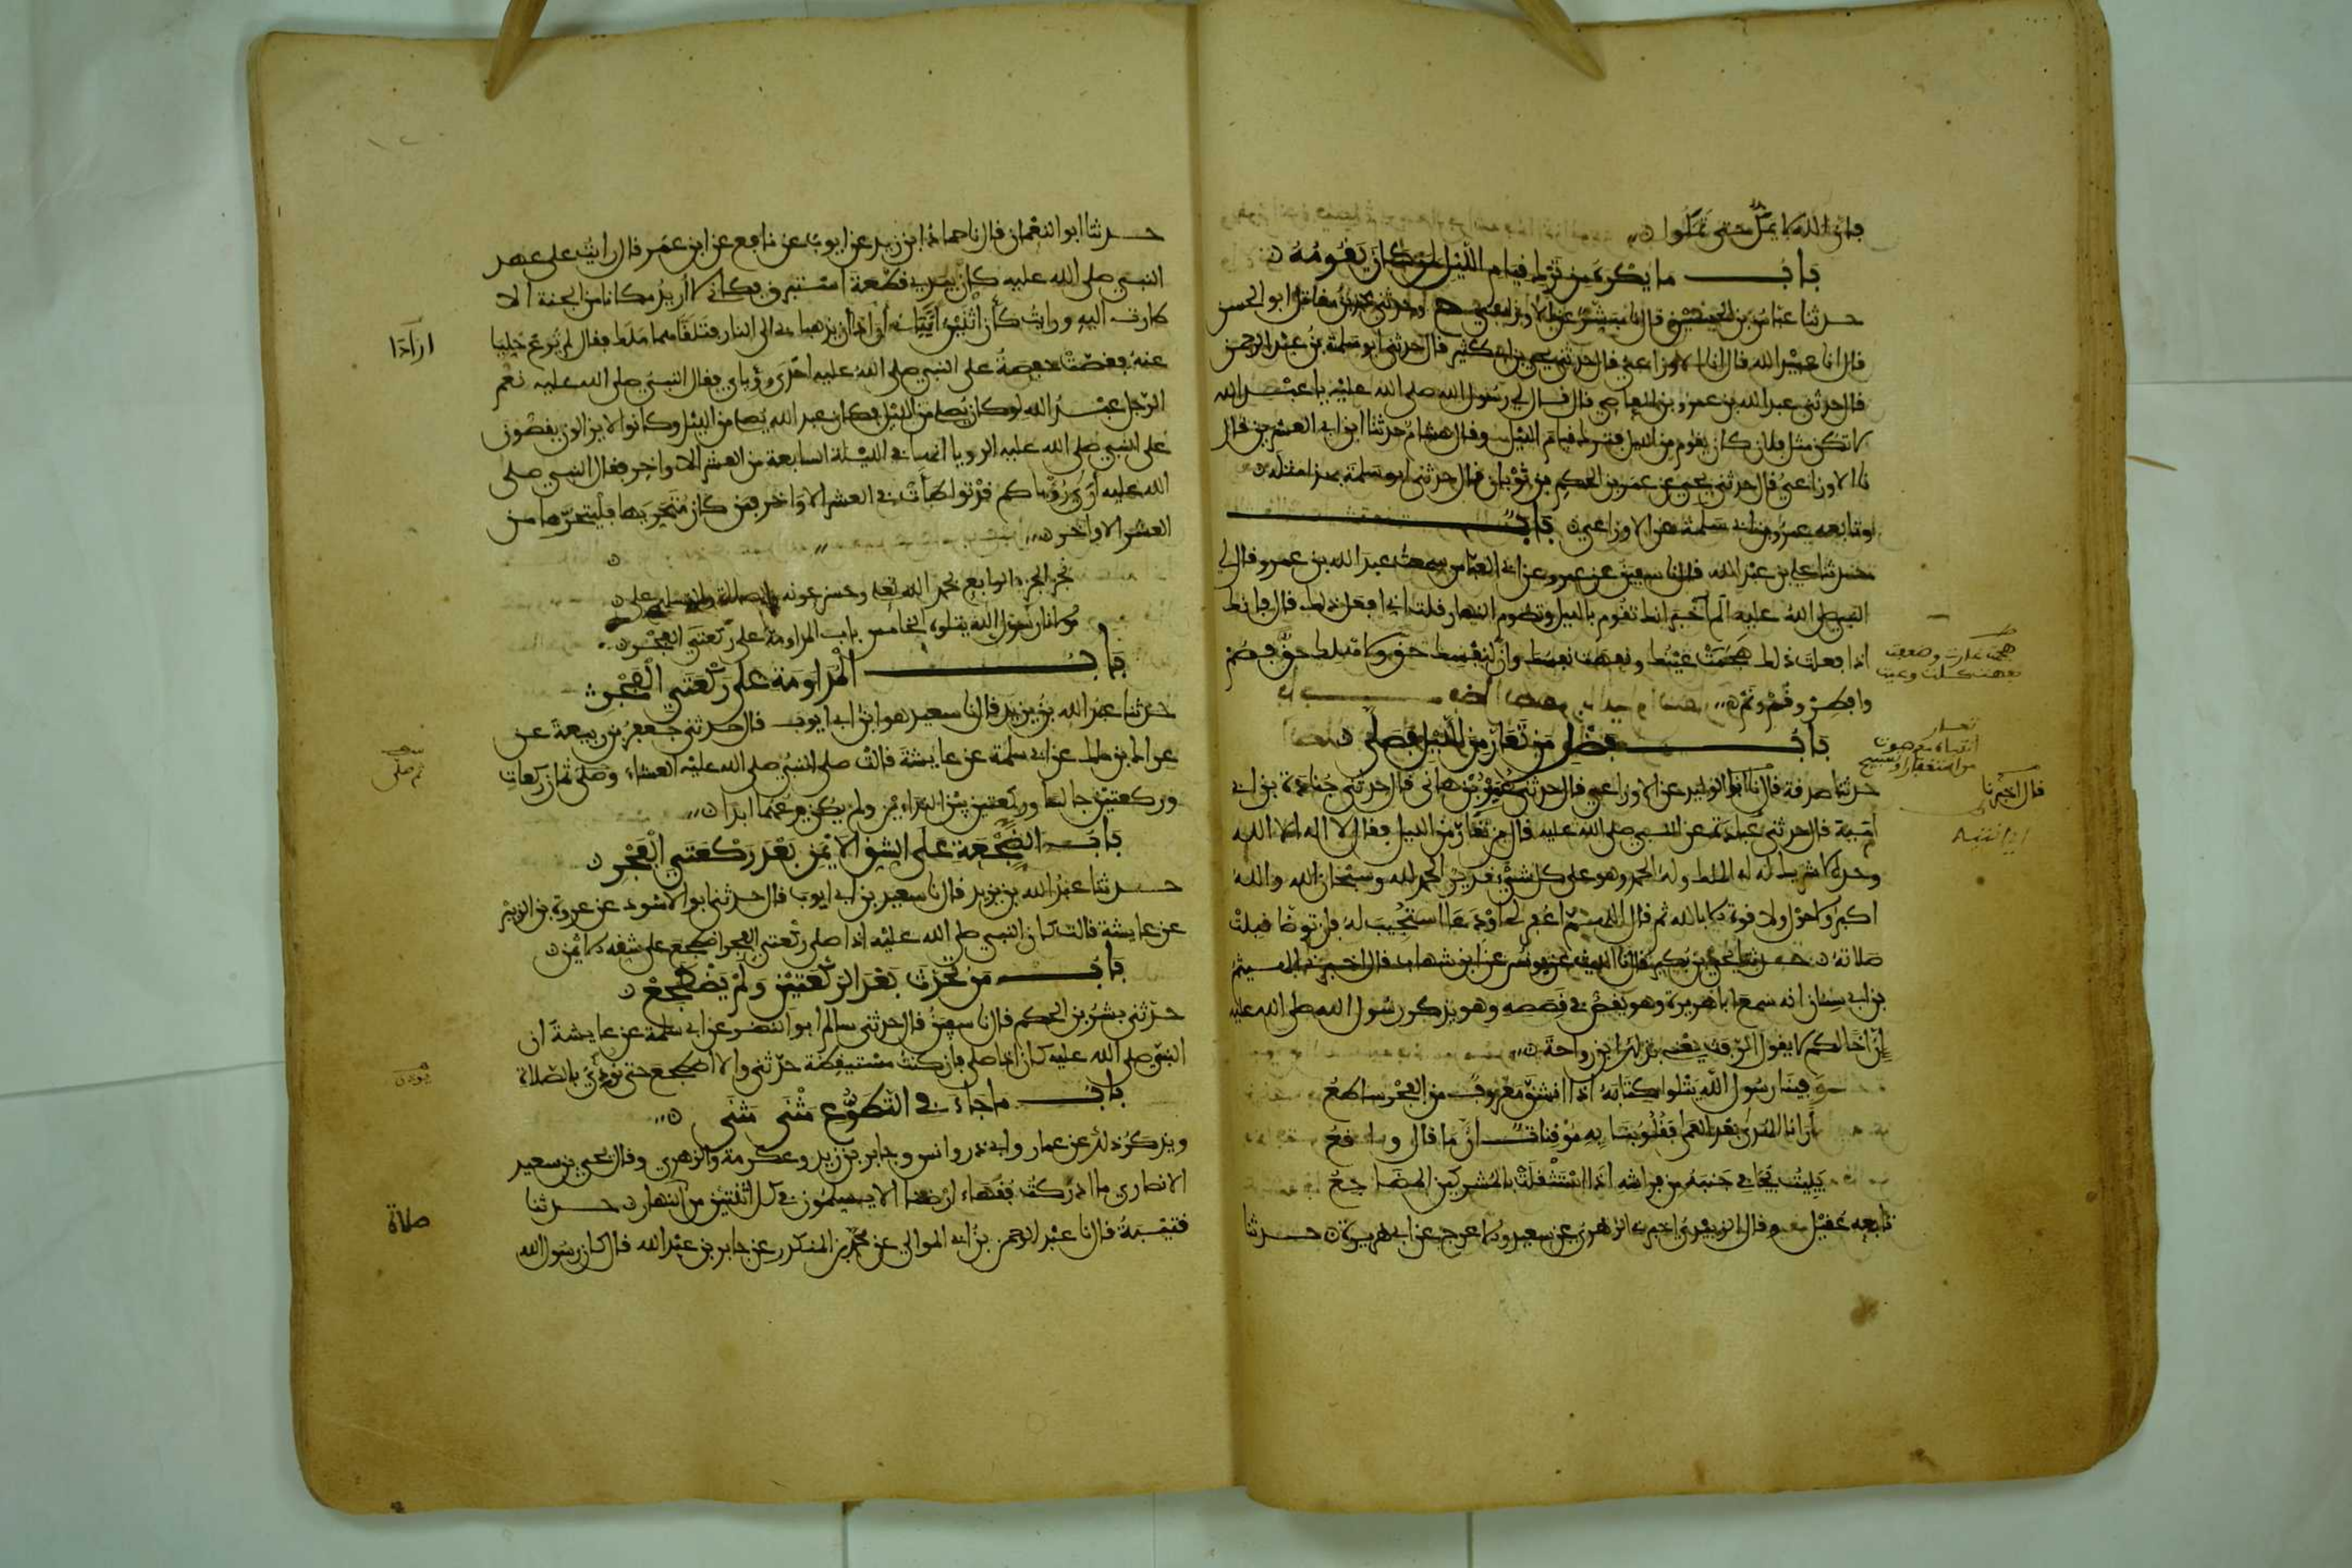 فان الله لا يمل حتى تملوا
باب ما يكره من ترك قيام الليل لمن كان يقومه
حدثنا عباس بن الحسين قال نا مبشر عن الاوزاعي ح وحدثني محمد بن مقاتل ابو الحسن
قال انا عبد الله قال انا الاوزاعي قال حدثني يحيى بن ابي كثير قال حدثني ابو سلمة بن عبد الرحمن
قال حدثني عبد الله بن عمرو بن العاصي قال قال لي رسول الله صلى الله عليه يا عبد الله
لا تكن مثل فلان كان يقوم من الليل فترك قيام الليل وقال هشام حدثنا ابن ابي العشرين قال
نا الاوزاعي قال حدثني يحيى عن عمر بن الحكم بن ثوبان قال حدثني ابو سلمة بهذا مثله
وتابعه عمرو بن ابي سلمة عن الاوزاعي باب
حدثنا علي بن عبد الله قال نا سفين عن عمرو عن ابي العباس سمعت عبد الله بن عمرو قال لي
النبي صلى الله عليه الم اخبر انك تقوم بالليل وتصوم النهار قلت اني افعل ذلك قال فانك
اذا فعلت ذلك هجمت عينك ونفهت نفسك وان لنفسك حق ولاهلك حق فصم
وافطر وقم ونم
باب فضل من تعار من الليل فصلى
حدثنا صدقة قال انا الوليد عن الاوزاعي قال حدثني عمير بن هاني قال حدثني جنادة بن ابي
امية قال حدثني عبادة عن النبي صلى الله عليه قال من تعار من الليل فقال لا اله الا الله
وحده لا شريك له له الملك وله الحمد وهو على كل شيء قدير الحمد لله وسبحان الله والله
اكبر ولا حول ولا قوة الا بالله ثم قال اللهم اغفر لي او دعا استجيب له فان توضا قبلت
صلاته حدثنا يحيى بن بكير قال نا الليث عن يونس عن ابن شهاب قال اخبرني الهيثم
بن ابي سنان انه سمع ابا هريرة وهو يقص في قصصه وهو يذكر رسول الله صلى الله عليه
ان اخا لكم لا يقول الرفث يعني بذلك ابن رواحة
وفينا رسول الله يتلوا كتابه اذا انشق معروف من الفجر ساطع
ارانا الهدى بعد العمى فقلوبنا به موقنات ان ما قال واقع
يبيت يجافي جنبه عن فراشه اذا استثقلت بالمشركين المضاجع
تابعه عقيل وقال الزبيدي اخبرني الزهري عن سعيد والاعرج عن ابي هريرة حدثنا
هجمت غارت وضعفت
نفهت كلت وعيت
قال اخبرنا
حدثنا ابو النعمان قال نا حماد ابن زيد عن ايوب عن نافع عن ابن عمر قال رايت على عهد
النبي صلى الله عليه كان بيدي قطعة استبرق فكاني لا اريد مكانا من الجنة الا
طارت اليه ورايت كان اثنين اتياني ارادا ان يذهبا بي الى النار فتلقاهما ملك فقال لم ترع خليا
عنه فقصت حفصة على النبي صلى الله عليه احدى رؤياي فقال النبي صلى الله عليه نعم
الرجل عبد الله لو كان يصلي من الليل فكان عبد الله يصلي من الليل وكانوا لا يزالون يقصون
على النبي صلى الله عليه الرويا انها في الليلة السابعة من العشر الاواخر فقال النبي صلى
الله عليه ارى رؤياكم قد تواطات في العشر الاواخر فمن كان متحريها فليتحرها من
العشر الاواخر
نجز الجزء الرابع بحمد الله تعلى وحسن عونه والصلاة والسلام على
مولانا رسول الله يتلوه الخامس باب المداومة على ركعتي الفجر
باب المداومة على ركعتي الفجر
حدثنا عبد الله بن يزيد قال نا سعيد هو ابن ابي ايوب قال حدثني جعفر بن ربيعة عن
عراك بن ملك عن ابي سلمة عن عايشة قالت صلى النبي صلى الله عليه العشاء وصلى ثمان ركعات
وركعتين جالسا وركعتين بين النداءين ولم يكن يدعهما ابدا
باب الضجعة على الشق الايمن بعد ركعتي الفجر
حدثنا عبد الله بن يزيد قال نا سعيد بن ابي ايوب قال حدثني ابو الاسود عن عروة بن الزبير
عن عايشة قالت كان النبي صلى الله عليه اذا صلى ركعتي الفجر اضطجع على شقه الايمن
باب من تحدث بعد الركعتين ولم يضطجع
حدثني بشر بن الحكم قال نا سفين قال حدثني سالم ابو النضر عن ابي سلمة عن عايشة ان
النبي صلى الله عليه كان اذا صلى فان كنت مستيقظة حدثني والا اضطجع حتى نودي بالصلاة
باب ما جاء في التطوع مثنى مثنى
ويذكر ذلك عن عمار وابي ذر وانس وجابر بن زيد وعكرمة والزهري وقال يحيى بن سعيد
الانصاري ما ادركت فقهاء ارضنا الا يسلمون في كل اثنتين من النهار حدثنا
قتيبة قال نا عبد الرحمن بن ابي الموالي عن محمد بن المنكدر عن جابر بن عبد الله قال كان رسول الله
ارادا
ثم صلى
يؤذن
صلاة